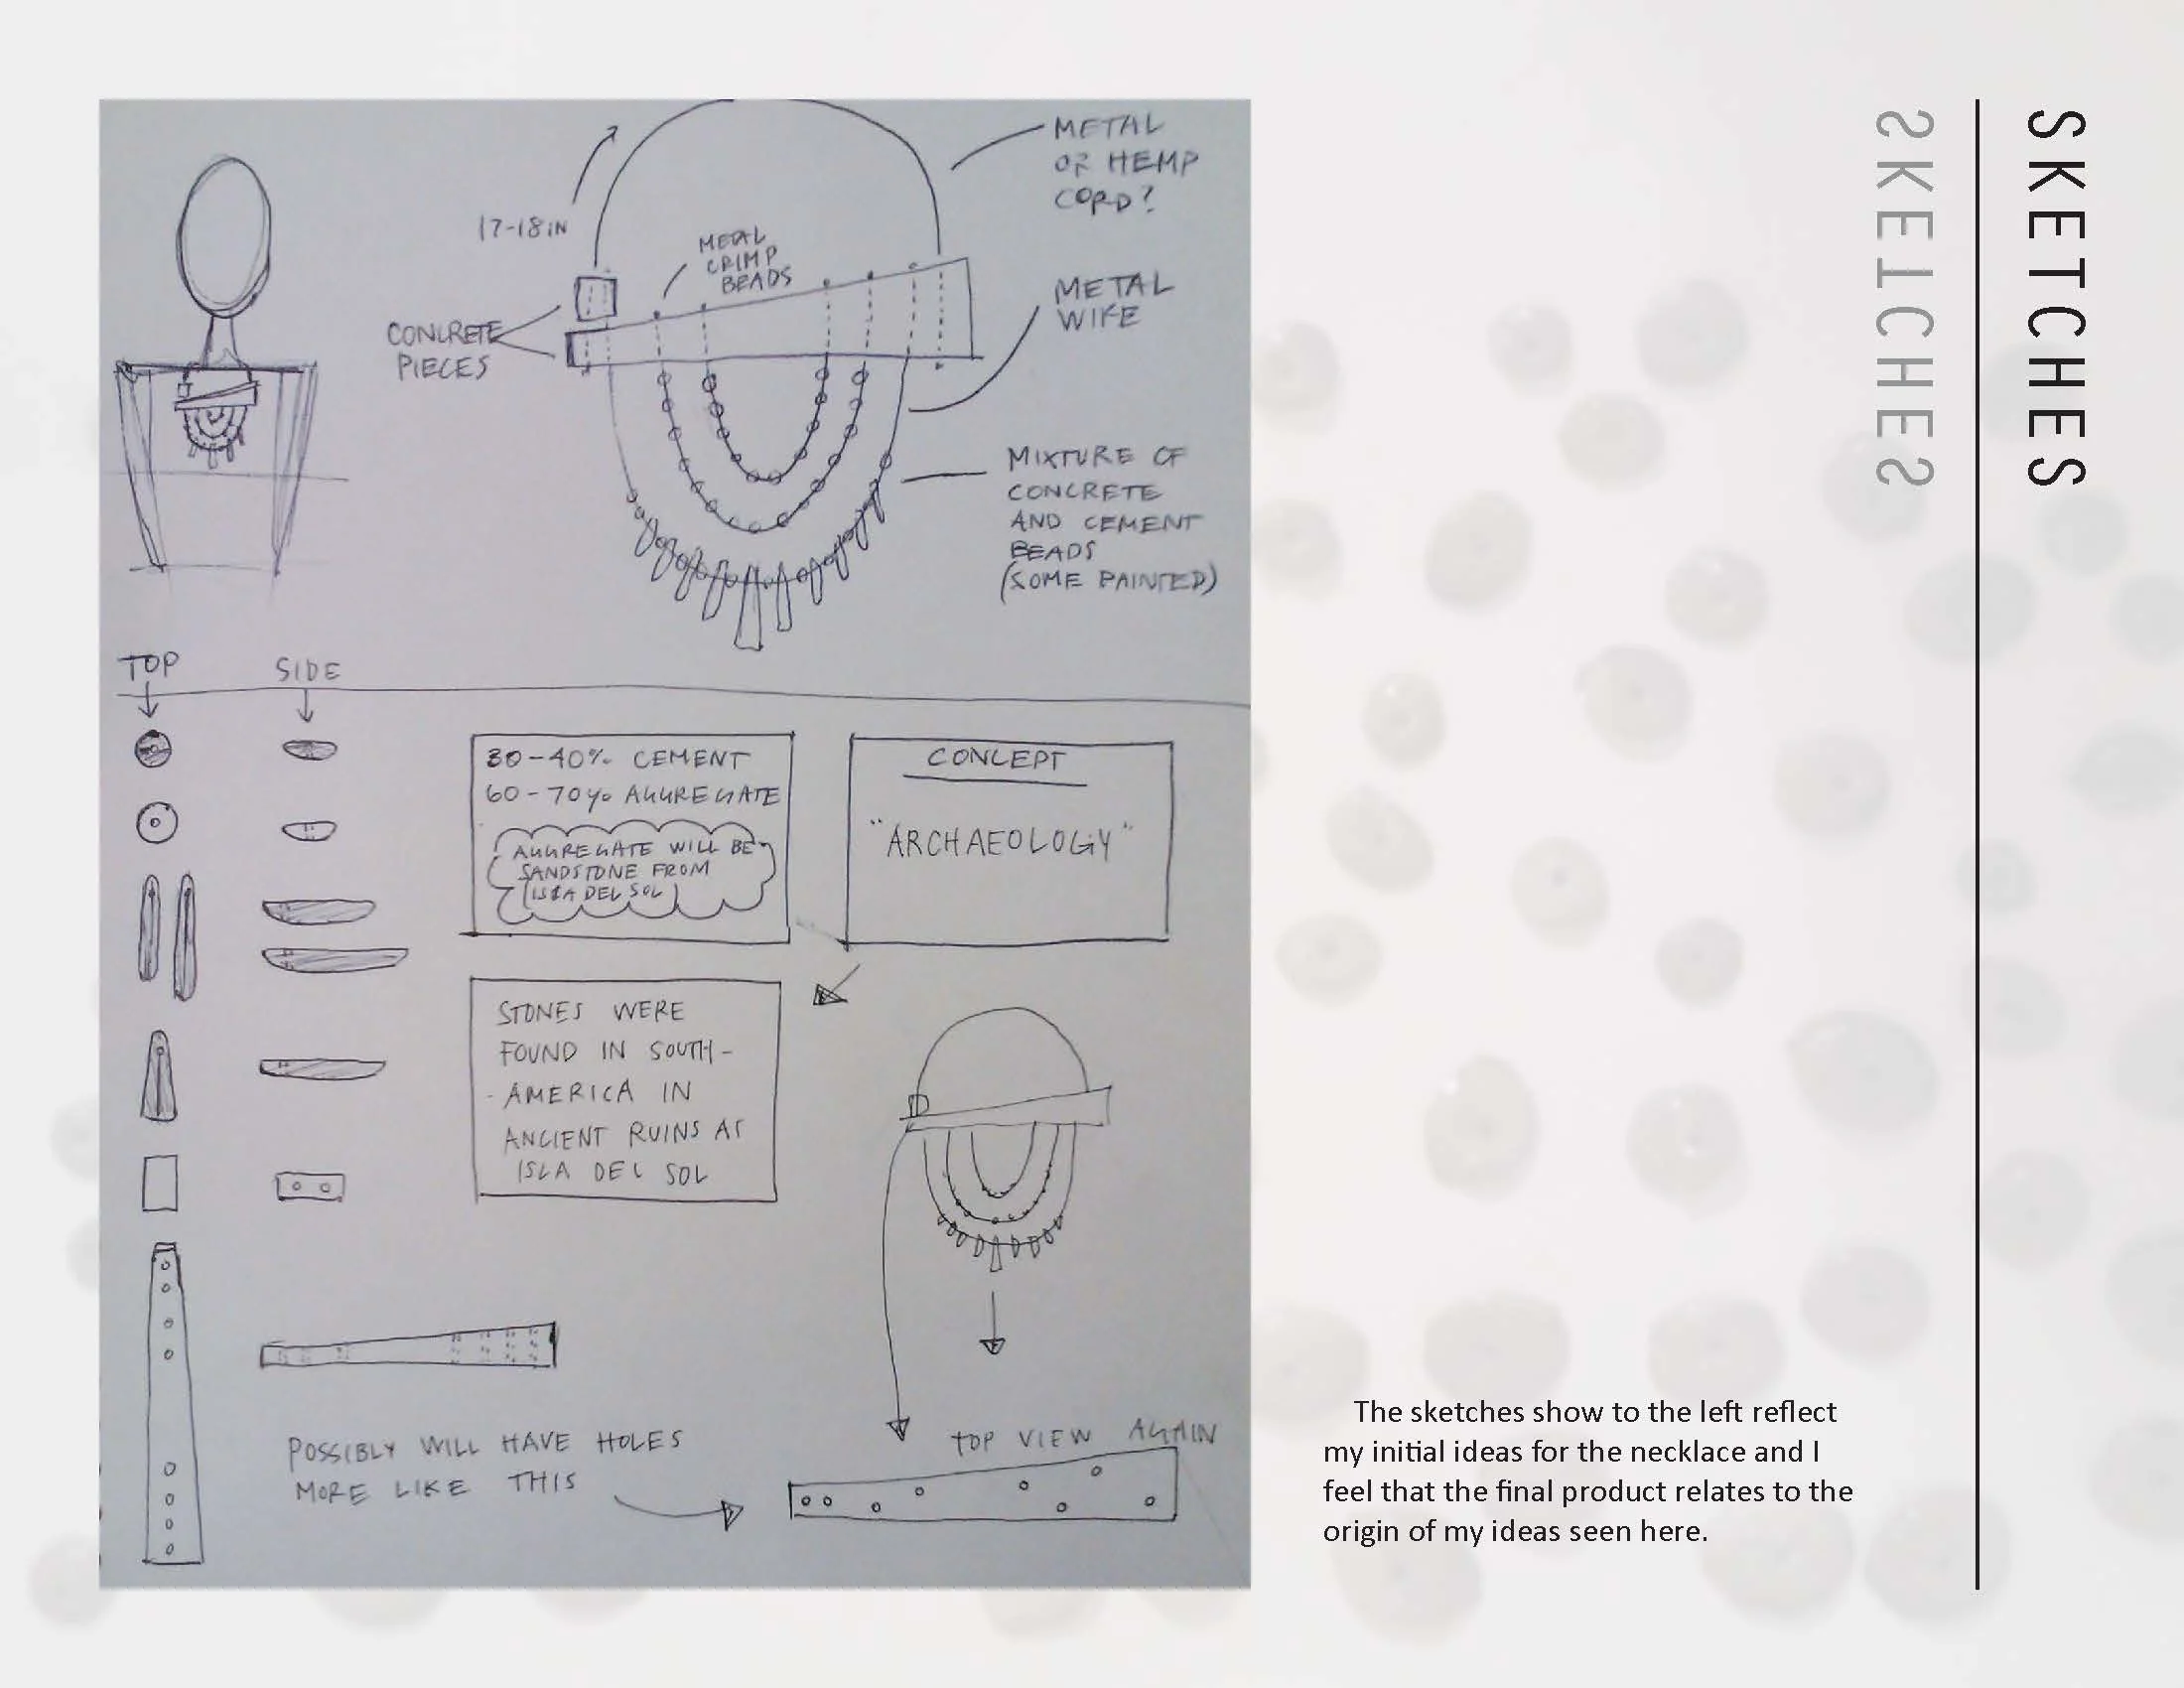 METAL
OR HEMP
CORD?
17-18IN
METAL
CRIMP
BEADS
METAL
WIRE
CONCRETE
PIECES
MIXTURE OF
CONCRETE
AND CEMENT
BEADS
(SOME PAINTED)
TOP
SIDE
30-40% CEMENT
60-70% AGGREGATE
AGGREGATE WILL BE
SANDSTONE FROM
(ISLA DEL SOL)
CONCEPT
"ARCHAEOLOGY"
STONES WERE
FOUND IN SOUTH-
-AMERICA IN
ANCIENT RUINS AT
ISLA DEL SOL
POSSIBLY WILL HAVE HOLES
MORE LIKE THIS
TOP VIEW AGAIN
SKETCHES
SKETCHES
The sketches show to the left reflect
my initial ideas for the necklace and I
feel that the final product relates to the
origin of my ideas seen here.